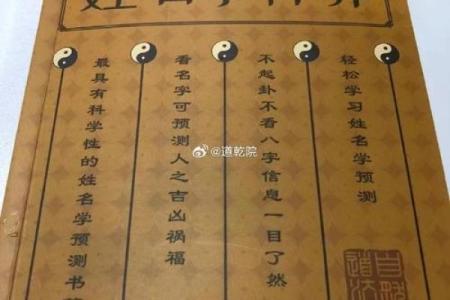 轻松学习姓名学预测
不起卦不看八字信息一目了然
看名字可预测人之吉凶祸福
最具有科学性的姓名学预测书
@道乾院